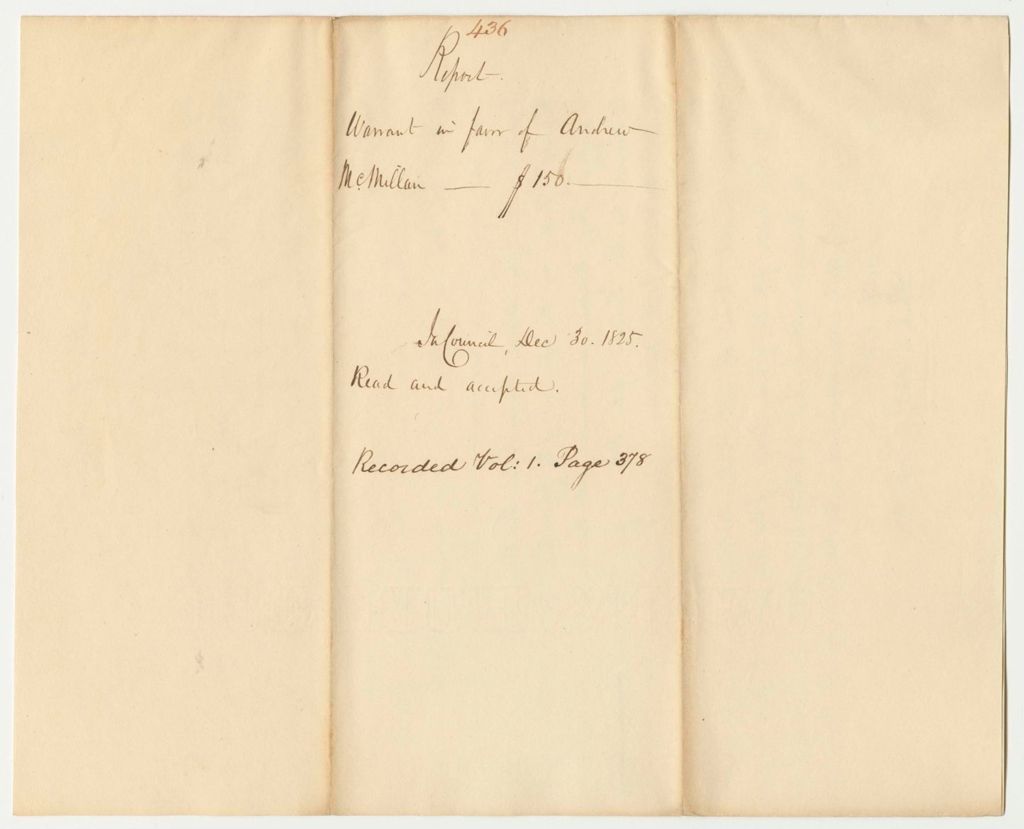 436
Report.
Warrant in favor of Andrew
McMillan — $150. —
In Council, Dec 30. 1825.
Read and accepted.
Recorded Vol: 1. Page 378